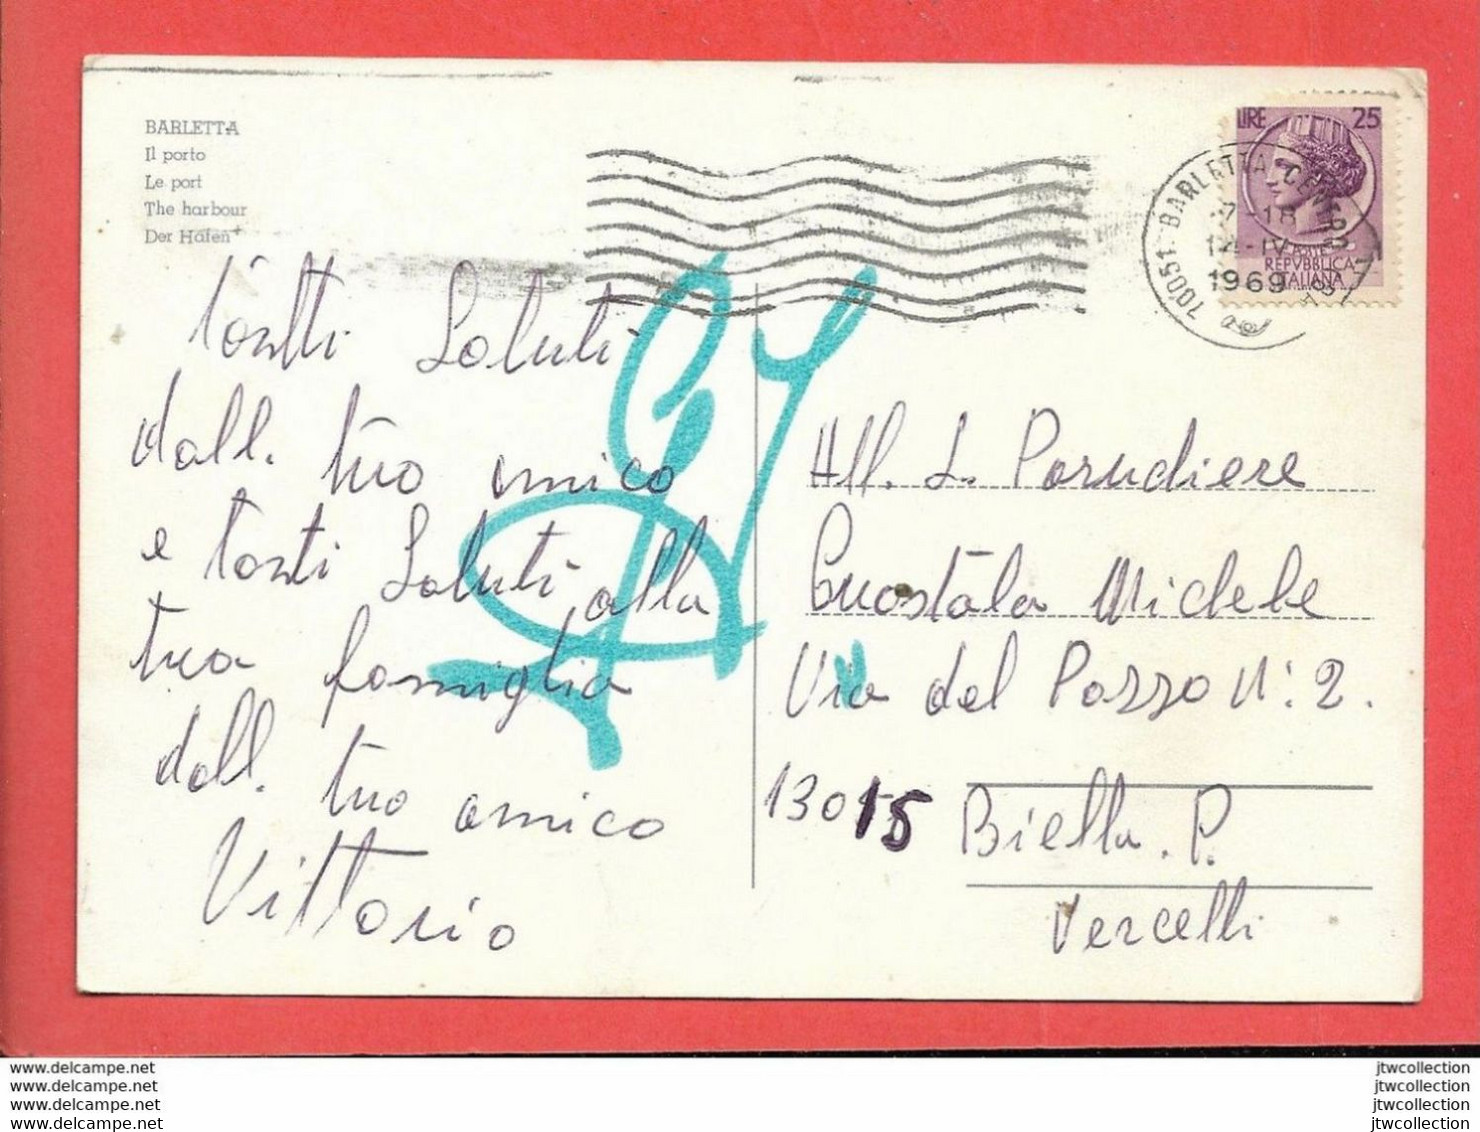 BARLETTA
Il porto
Le port
The harbour
Der Hafen
LIRE 25
REPVBBLICA
ITALIANA
70051 BARLETTA CENTRO
1969
Tantti Saluti
dall. tuo amico
e Tanti Saluti alla
tua famiglia
dall. tuo amico
Vittorio
All.
Michele
Via dal Pozzo N: 2.
13015
Biella. P.
Vercelli
www.delcampe.net
www.delcampe.net
www.delcampe.net
www.delcampe.net
jtwcollection
jtwcollection
jtwcollection
jtwcollection